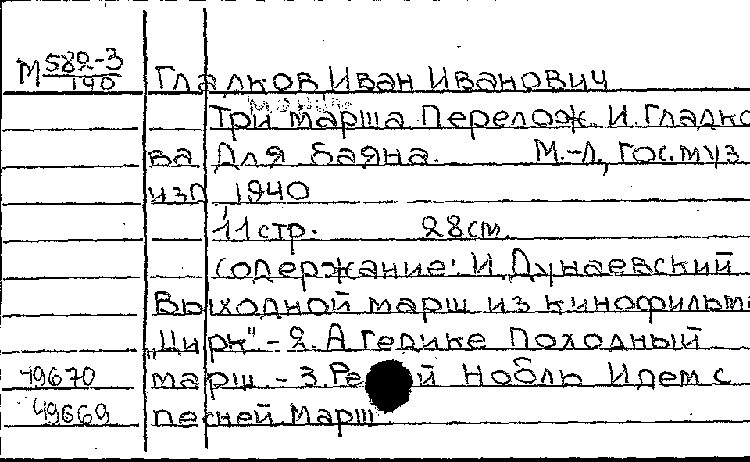 М 582-3/190 Гладков Иван Иванович
Три марша Перелож. И. Гладко
ва Для баяна. М.-Л., Гос. муз
изд 1940
11 стр. 28 см.
Содержание: И. Дунаевский
Выходной марш из кинофильм
"Цирк" - 2. А Гедике Походный
49670 марш - 3. Ре й Нобль Идем с
49669 песней. Марш